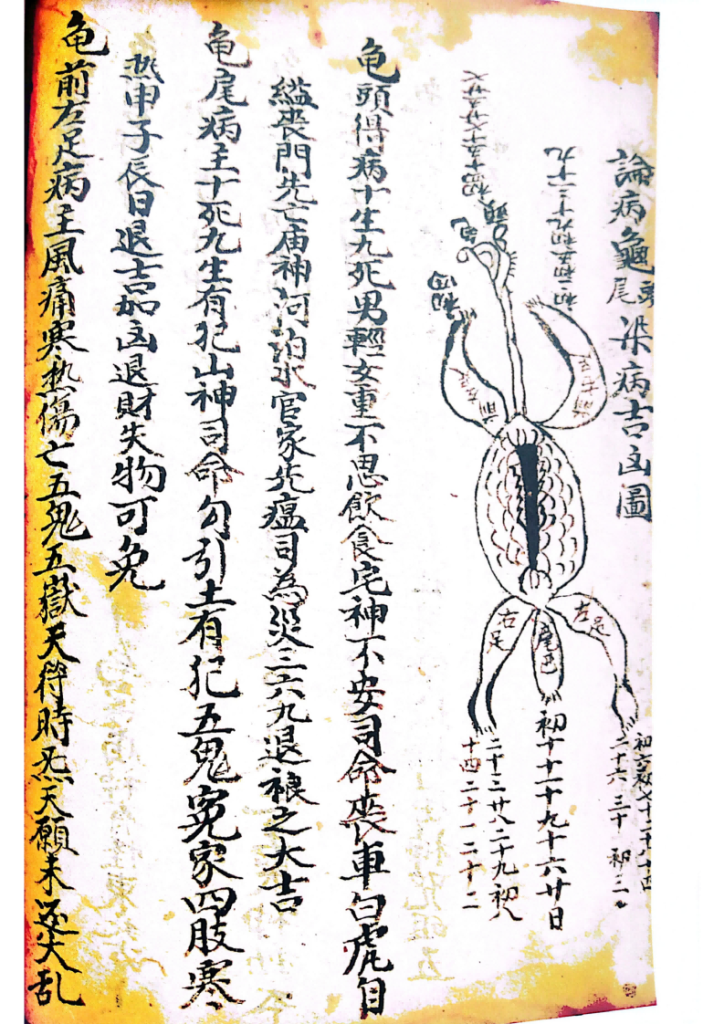 論病龜頭尾染病吉凶圖
左足
右足
尾巴
初十十一十九十六廿日
二十三廿八二十九初八
十四二十一二十二
二十六 三十 初二
龟頭得病十生九死男輕女重不思飲食宅神不安司命喪車白虎自
縊喪門先亡庙神河泊水官家先瘟司為災三六九退禳之大吉
龟尾病主十死九生有犯山神司命勾引土有犯五鬼冤家四肢寒
热申子辰日退吉加凶退財失物可免
龟前左足病主風痛寒热傷亡五鬼五嶽天符時炁天願未还大乱